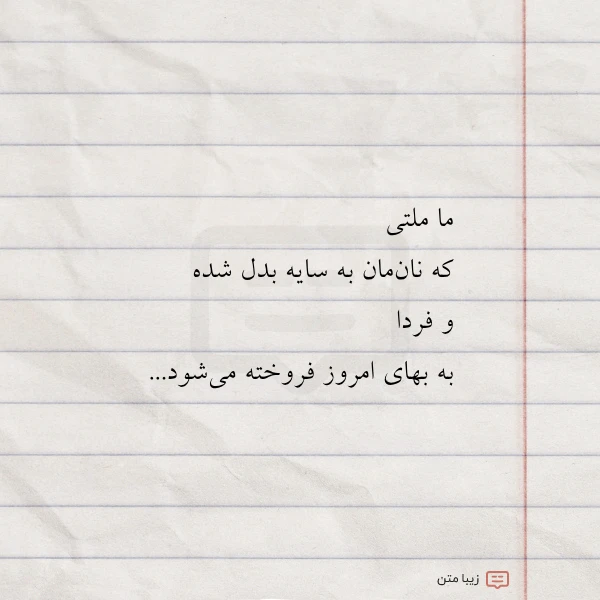 ما ملتی
که نان‌مان به سایه بدل شده
و فردا
به بهای امروز فروخته می‌شود...
زیبا متن